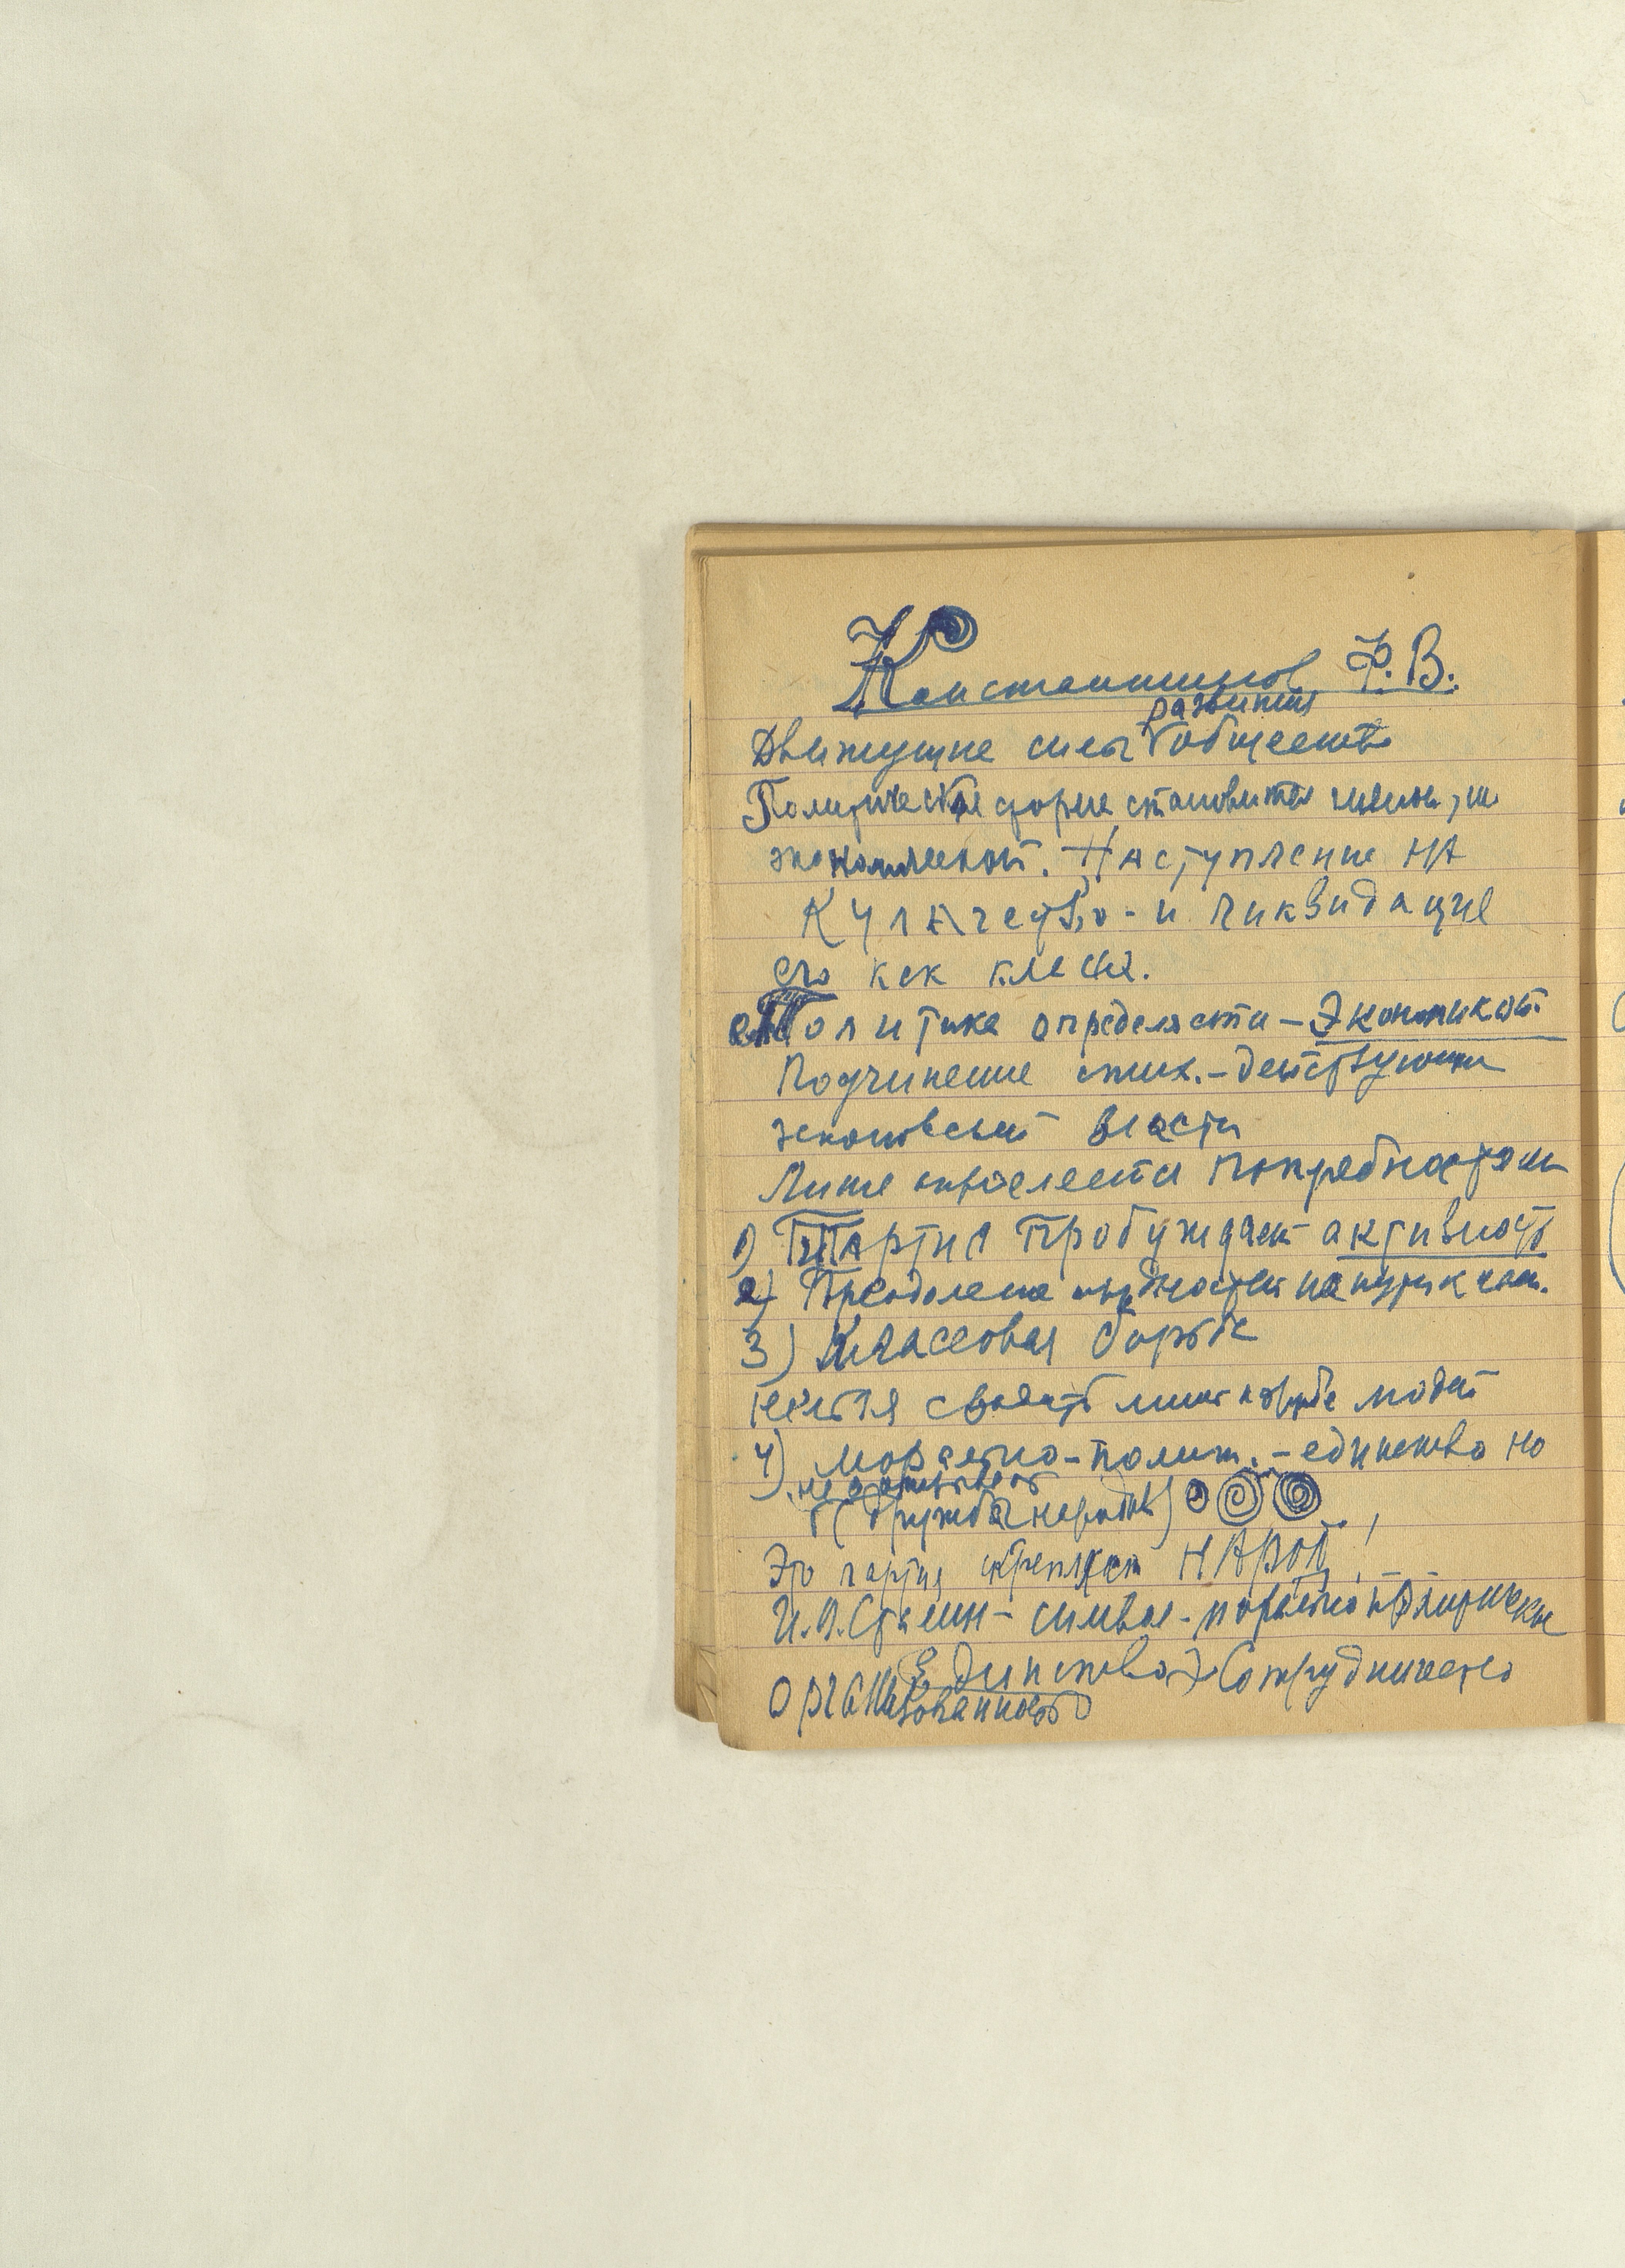 Константинов Ф.В.
развития
Движущие силы общества
Политическая форма становится
экономикой. Наступление НА
Кулачество - и ликвидация
его как класса.
Политика определяется – Экономикой
Подчинение стих. – действующ
власти
потребностями
1) Партия пробуждает активность
2) Преодоление трудностей на пути к ком.
3) Классовая борьба
нельзя сводить лишь к борьбе людей
4) Морально-полит. – единство но
(дружба народов)
Это партия скрепляет НАРОД!
И.В. Сталин – символ - морально политическ
Единства Сотрудничество
организованность